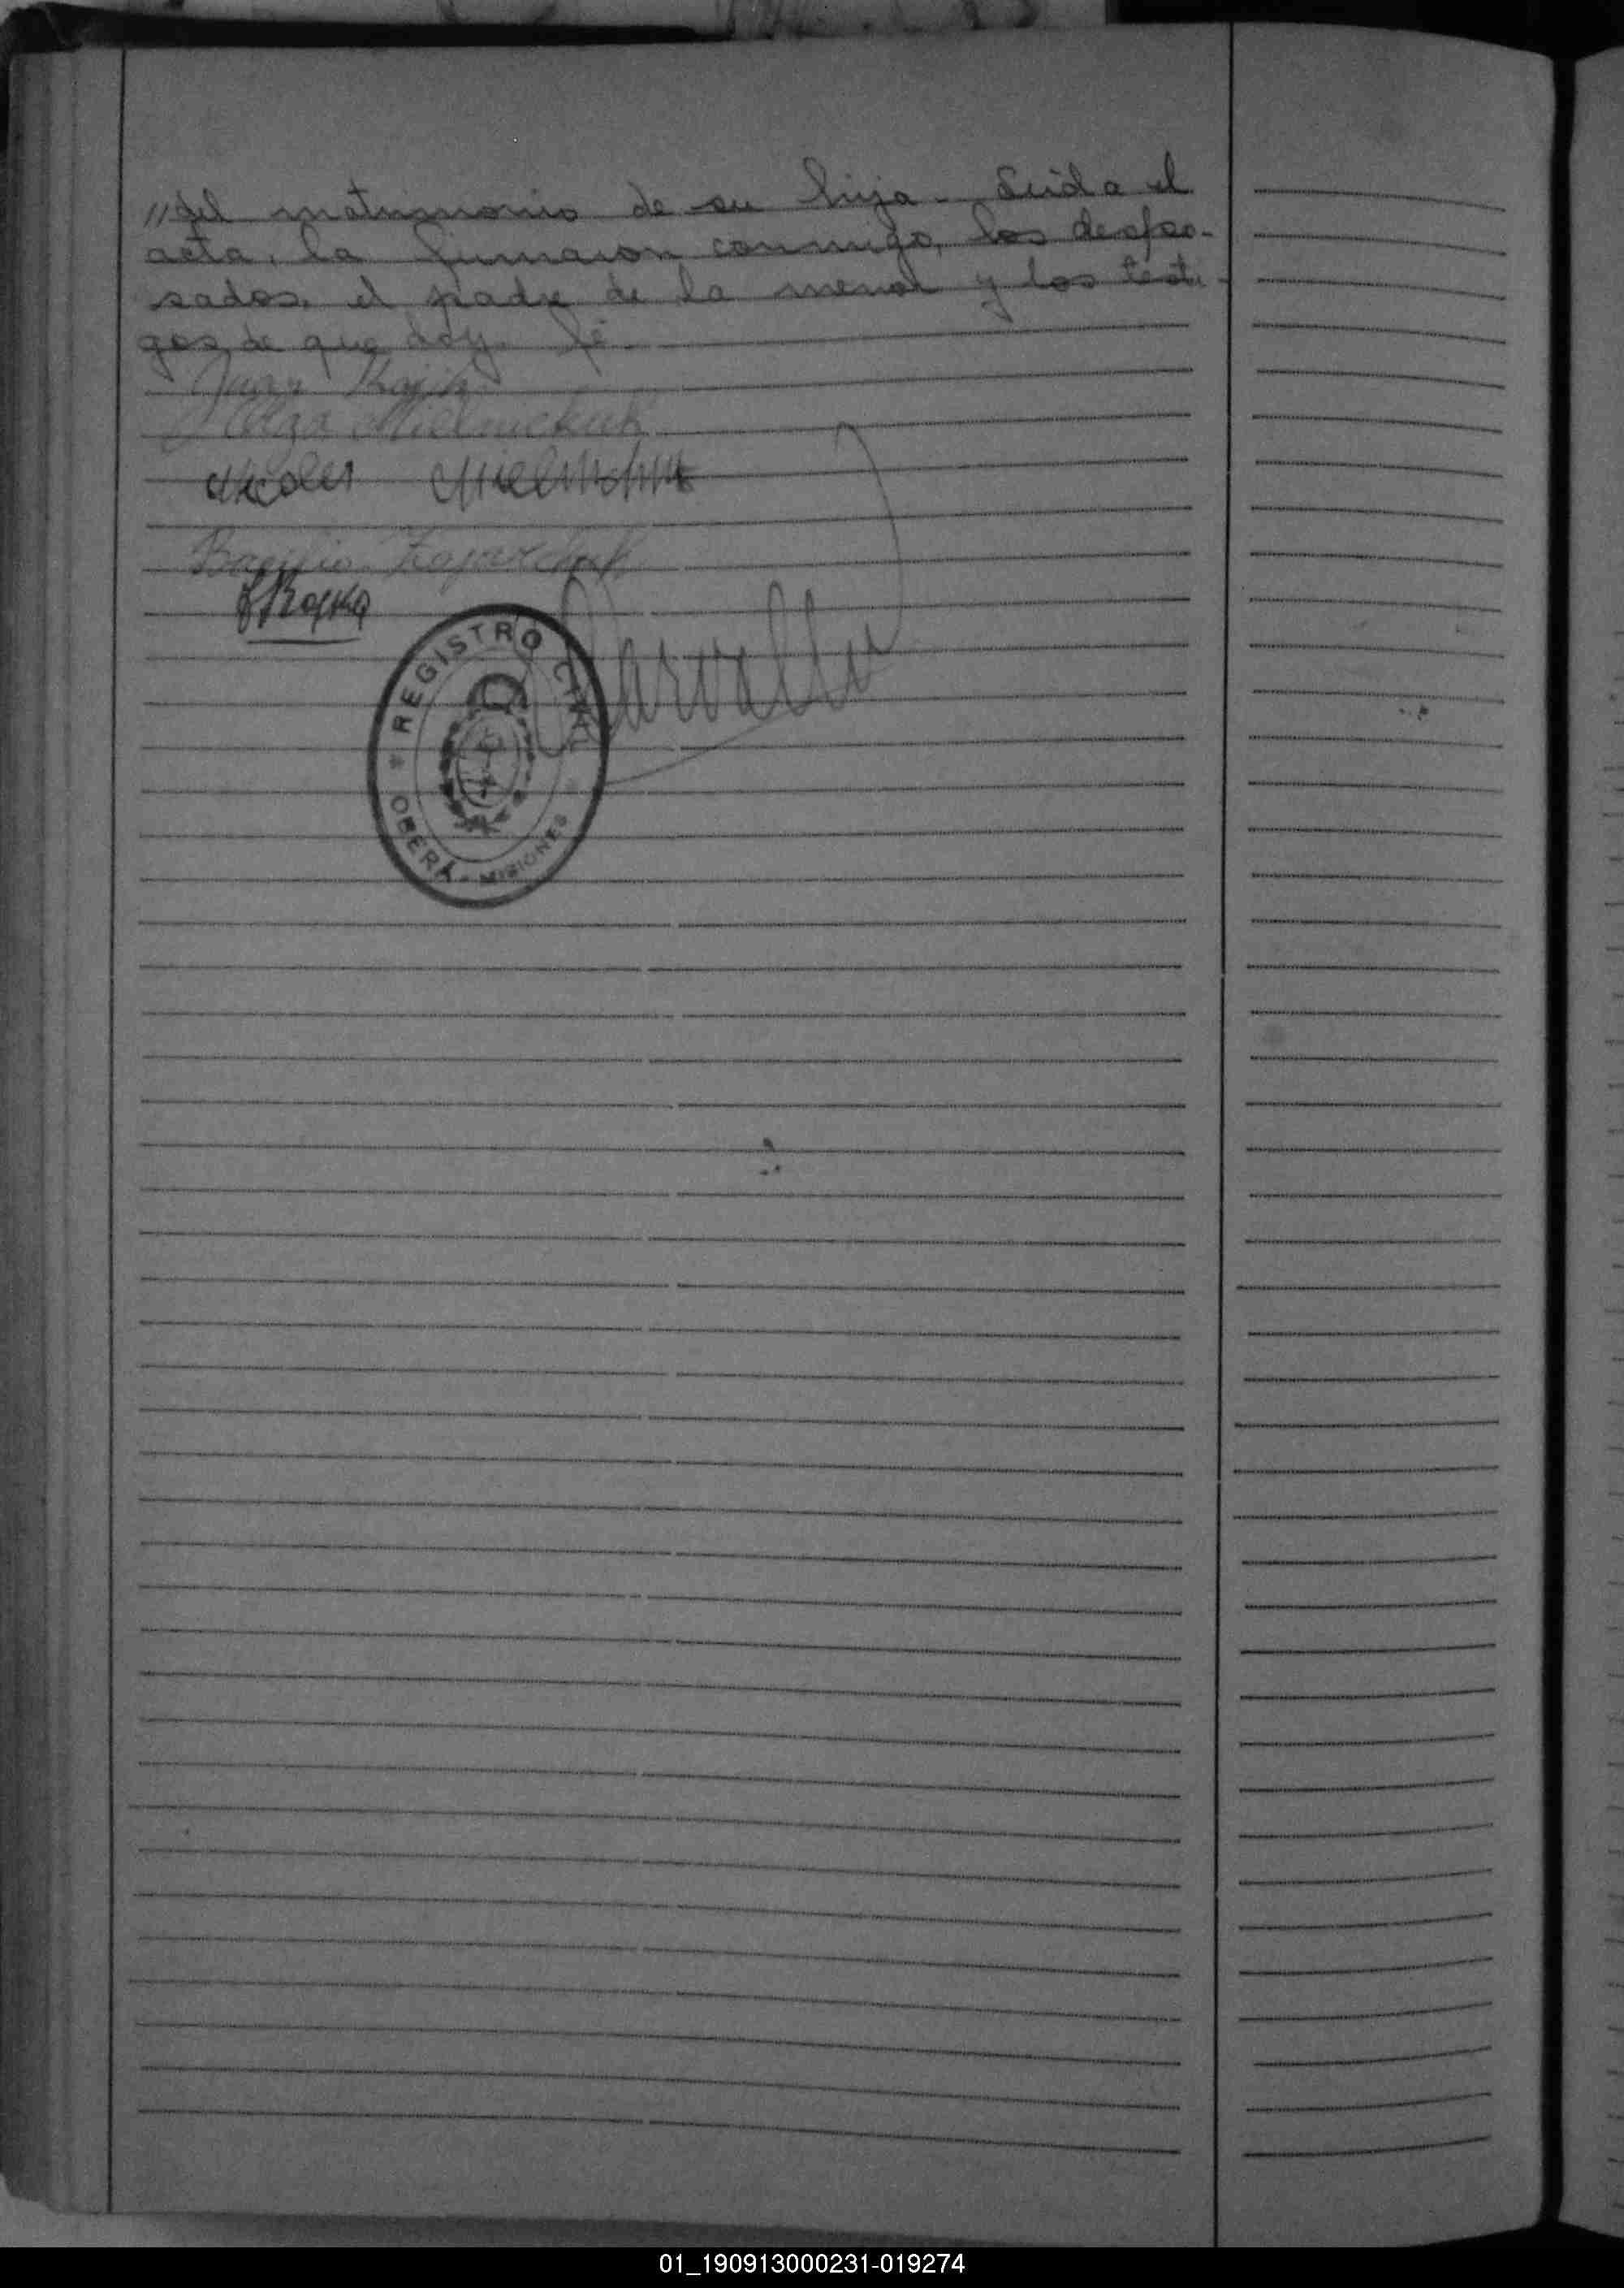 //del matrimonio de su hija. Leida el
acta, la firmaron conmigo, los despo-
sados, el padre de la menor y los testi-
gos, de que doy fé.
Juan
Olga Mielnickuk
Basilio
REGISTRO CIVIL
OBERÁ - MISIONES
01_190913000231-019274